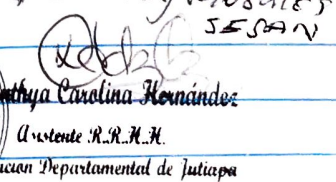 SESAN
Carolina Hernández
Asistente R.R.H.H.
Departamental de Jutiapa